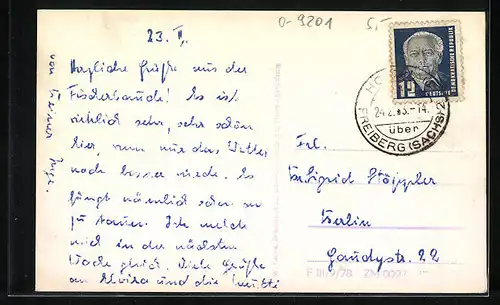 0-9201
5,-
23. II.
Herzliche Grüße aus der
Fischerbaude! Es ist
wirklich sehr, sehr schön
hier, wenn nur das Wetter
noch besser würde. Es
fängt nämlich schon an
zu tauen. Ich melde
mich in der nächsten
Woche gleich. Viele Grüße
an Elvira und die Mutti
von Deiner Inge.
12
DEUTSCHE
DEMOKRATISCHE REPUBLIK
24.2.
-14
über
FREIBERG (SACHS) 2
Frl.
Sigrid Töppler
Berlin
Gaudystr. 22
F III/9/78